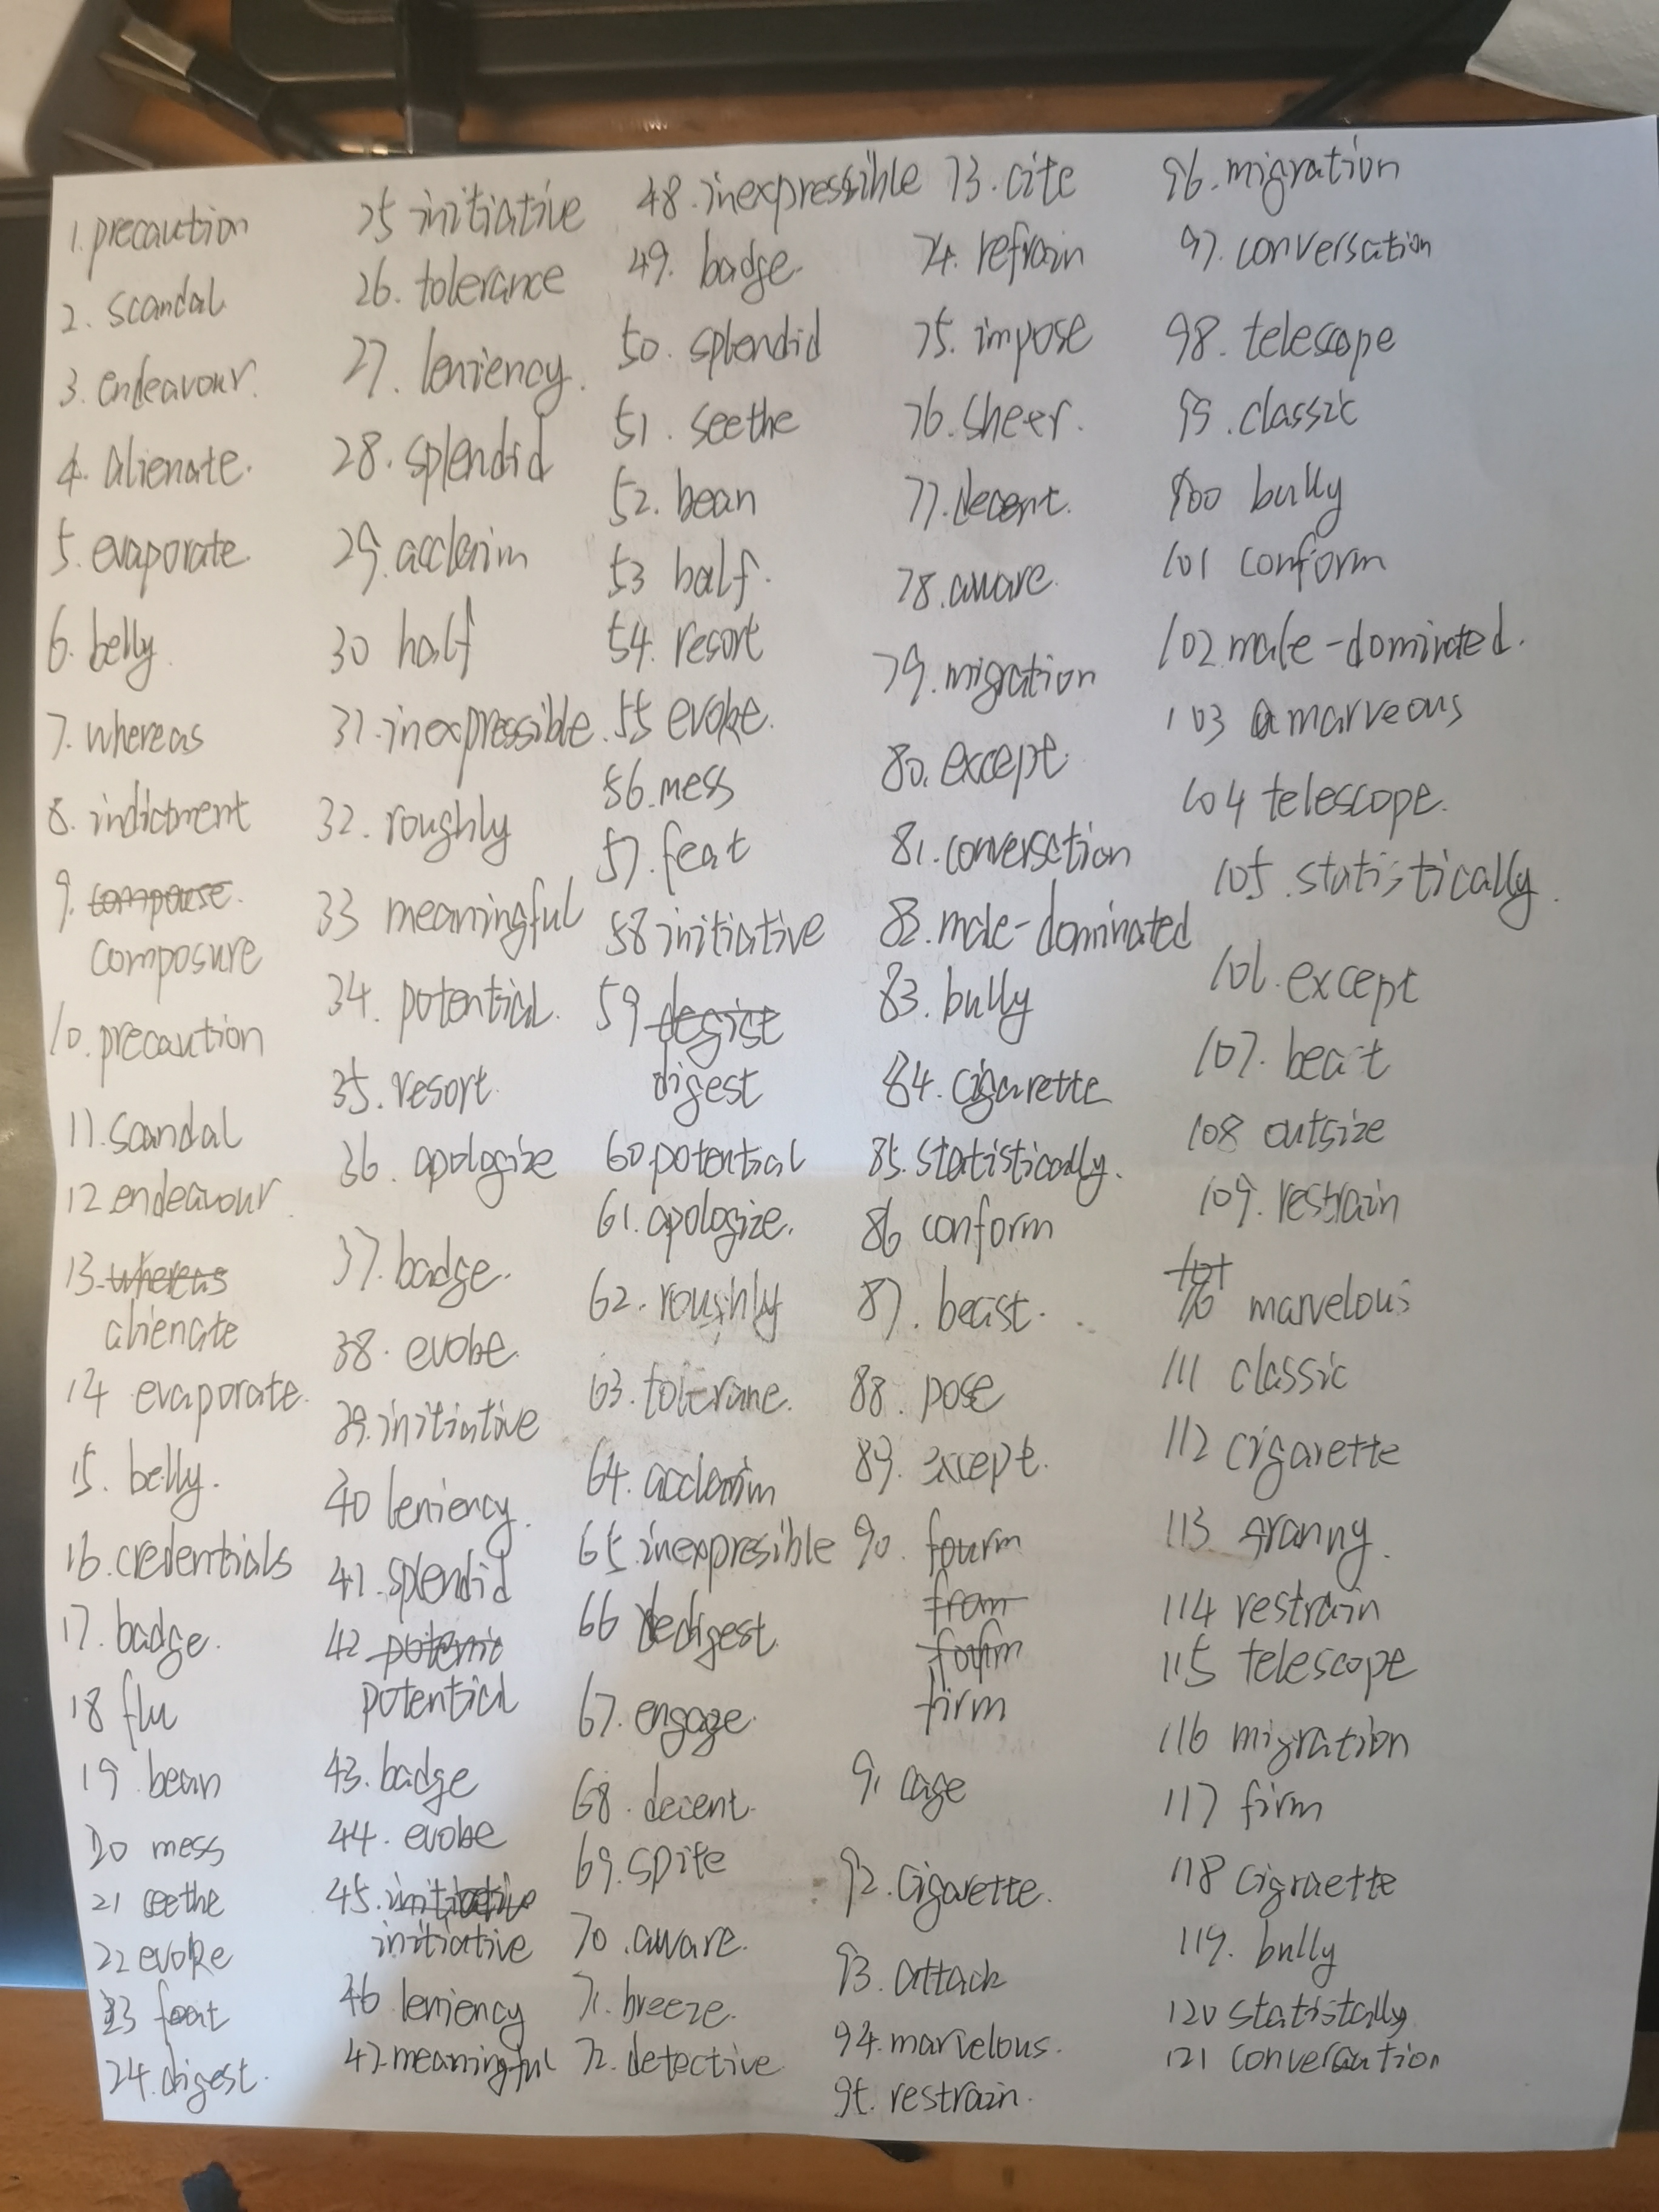 1. precaution
2. scandal
3. endeavour.
4. alienate.
5. evaporate.
6. belly.
7. whereas
8. indictment
9. compouse.
composure
10. precaution
11. scandal
12 endeavour.
13. whereas
alienate
14 evaporate.
15. belly.
16. credentials
17. badge.
18 flu
19 bean
20 mess
21 seethe
22 evoke
23 feat
24. digest.
25 initiative
26. tolerance
27. leniency.
28. splendid
29. acclaim
30 half
31. inexpressible.
32. roughly
33 meaningful
34. potential.
35. resort.
36. apologize
37. badge.
38. evobe.
39. initiative
40 leniency.
41. splendid
42 potenic
potential
43. badge
44. evobe
45. initiative
initiative
46 leniency
47. meaningful
48. inexpressible
49. badge.
50. splendid
51. seethe
52. bean
53 half.
54. resort
55 evoke.
56. mess
57. feat
58 initiative
59 degist
digest
60. potential
61. apologize.
62. roughly
63. tolerane.
64. acclaim
65. inexpresible
66 digest.
67. engage.
68. decent.
69. spite
70. aware.
71. breeze.
72. detective
73. cite
74. refrain
75. impose
76. sheer.
77. decent.
78. aware.
79. migration
80. except.
81. conversation
82. male-dominated
83. bully
84. cigarette
85. statistically.
86 conform
87. beast.
88. pose
89. except.
90. fourm
from
fourm
firm
91 cage
92. cigarette.
93. attack
94. marvelous.
95. restrain.
96. migration
97. conversation
98. telescope
99. classic
100 bully
101 conform
102 male-dominated.
103 a marveous
104 telescope.
105. statistically.
106. except
107. beast
108 outsize
109. restrain
110 marvelous
111 classic
112 cigarette
113 granny.
114 restrain
115 telescope
116 migration
117 firm
118 cigraette
119. bully
120 statistcally
121 conversation